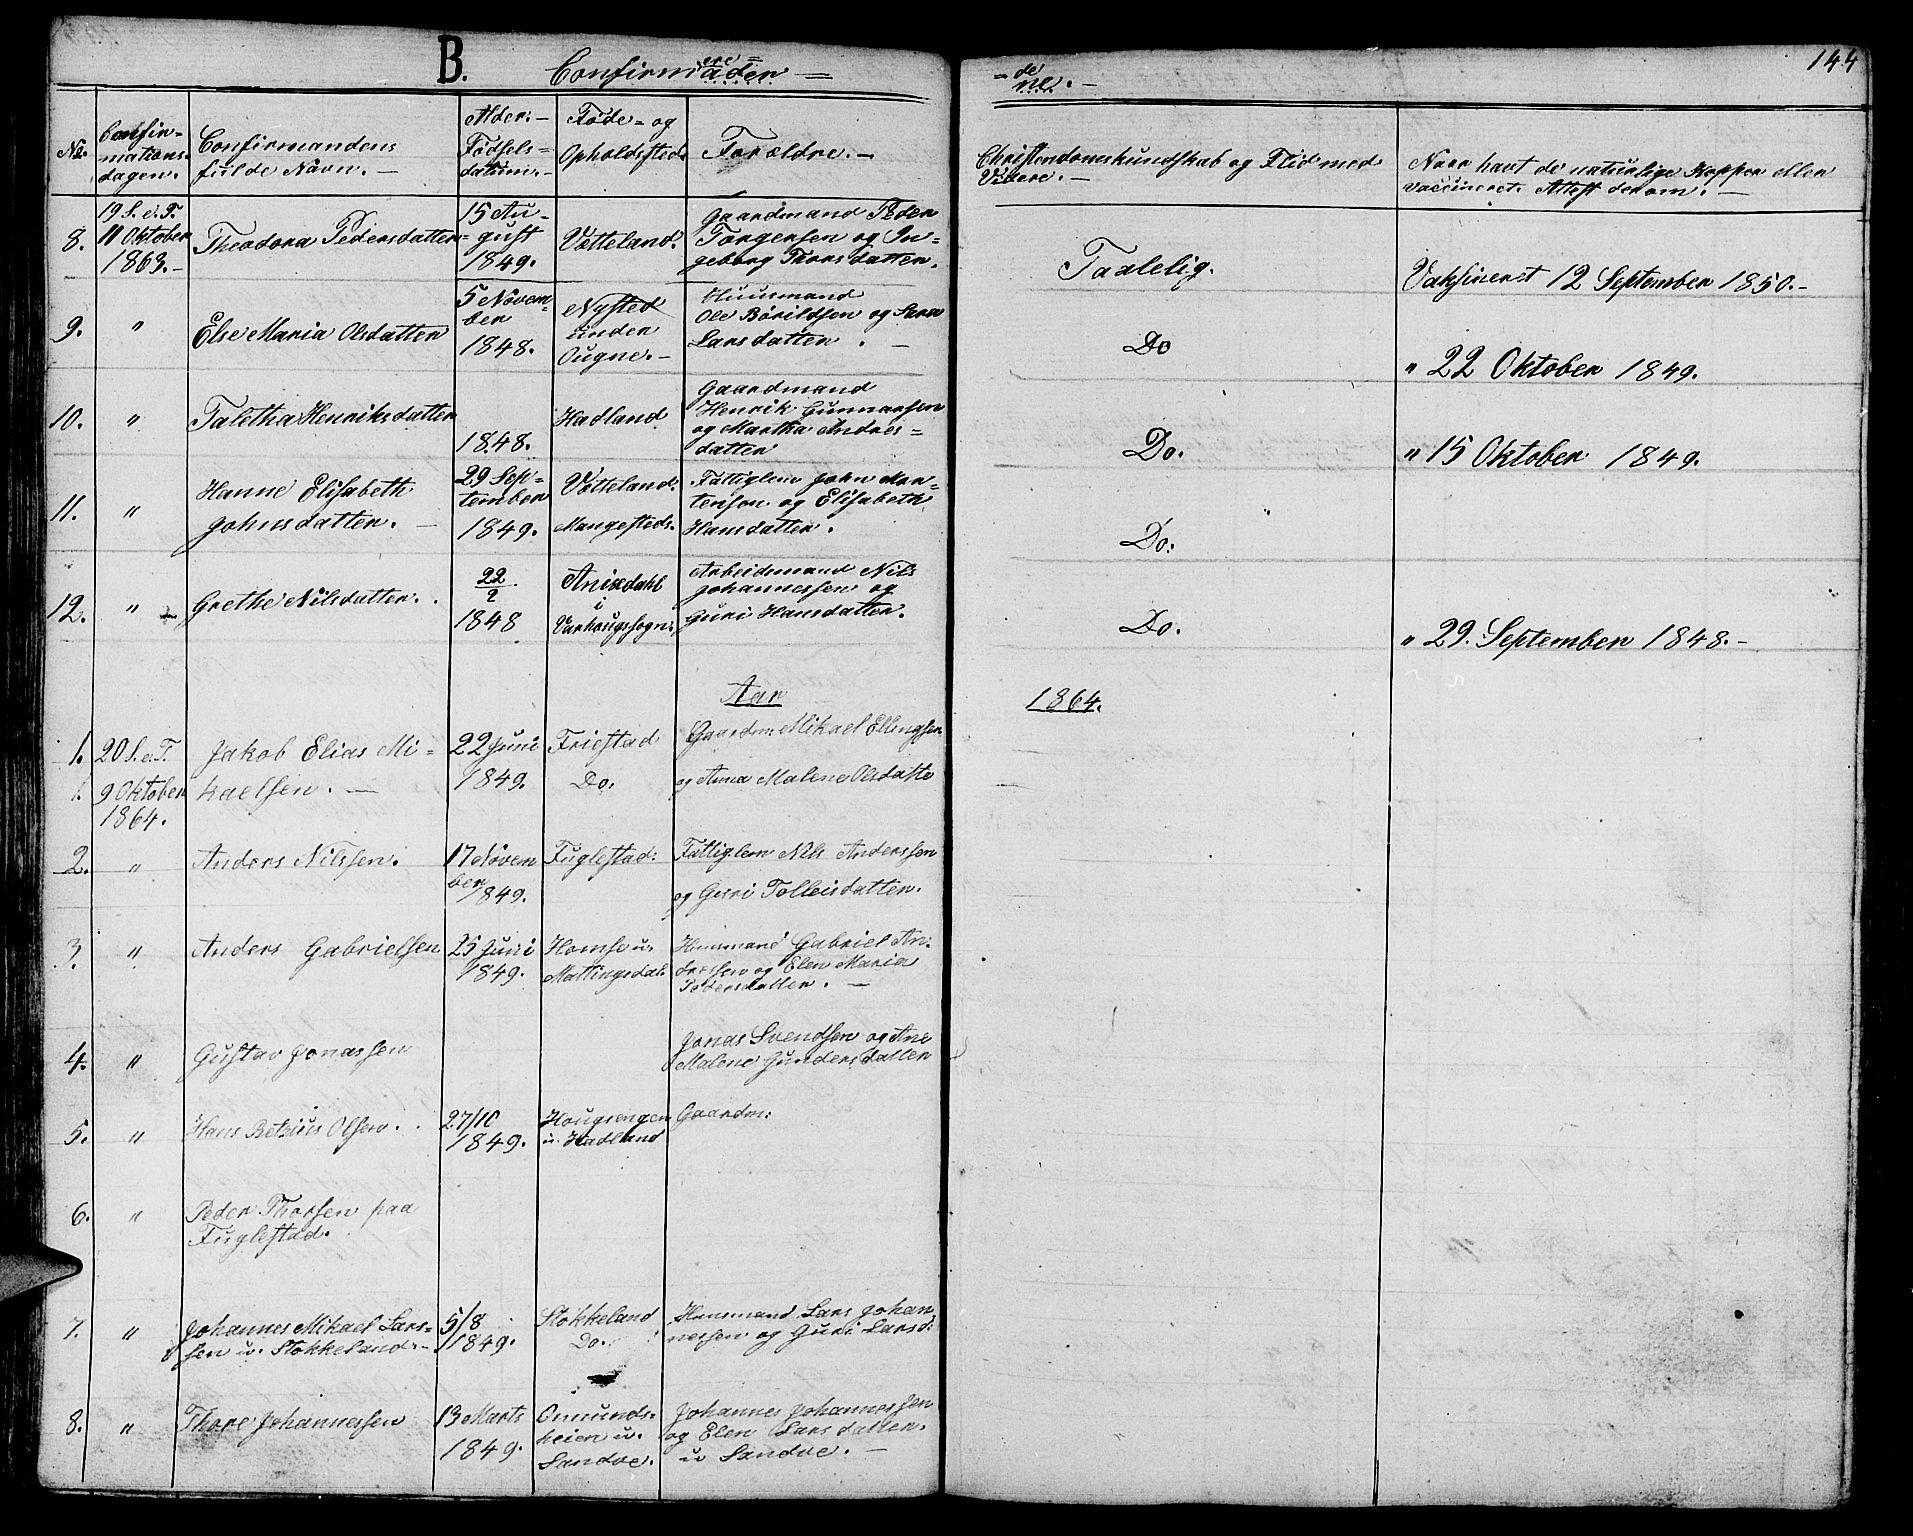 144
B. Confirmerede
Confirmaderne. —
No. Confirmationsdagen. Confirmandens fulde Navn. — Alder:— Fødselsdatum.— Føde- og Opholdssted. Forældre. — Christendomskundskab og Flid med Videre. — Naar havt de naturlige Kopper eller vaccineret. Attest derom. —
8. 19 S. e. T. 11 Oktober 1863.— Theodora Pedersdatter 15 August 1849. Vetteland. Gaardmand Peder Torgersen og Ingeborg Thorsdatter. Taalelig. Vaksineret 12 September 1850.—
9. " Else Maria Olsdatter 5 November 1848. Nysted under Ougne.— Huusmand Ole Bårildsen og Sara Larsdatter. — Do " 22 Oktober 1849.
10. " Taletha Henriksdatter 1848. Hadland Gaardmand Henrik Gunnarsen og Martha Andresdatter Do. " 15 Oktober 1849.
11. " Hanne Elisabeth Johnsdatter. — 29 September 1849. Vetteland. Mangesteds. Fattiglem John Mortensen og Elisabeth Hansdatter. Do.
12. " Grethe Nilsdatter. 22/2 1848 Anisdahl i Varhougssogn. Arbeidsmand Nils Johannessen og Guri Hansdatter. Do. " 29. September 1848.—
Aar 1864.
1. 20 S. e. T. 9 Oktober 1864. Jakob Elias Mikaelsen. — 22 Juni 1849. Friestad Do. Gaardm: Mikael Ellingsen og Anna Malene Olsdatte
2. " Anders Nilssen. 17 November 1849. Fuglestad: Fattiglem Nils Anderssen og Guri Tolleisdatter.
3. " Anders Gabrielsen 25 Juni 1849. Homse u. Mattingsdal. Huusmand Gabriel Anderssen og Elen Maria Pedersdatter. —
4. " Gustav Jonassen Jonas Svendsen og Ane Malene Gundersdatter
5. " Hans Betzius Olsen. 27/10 1849. Hougsengen u. Hadland Gaardm:
6. " Peder Thorsen paa Fuglestad.
7. " Johannes Mikael Larssen u. Stokkeland.— 5/8 1849. Stokkeland Do. Huusmand Lars Johannessen og Guri Larsd:
8. " Thore Johannessen 13 Marts 1849. Omundsheien u. Sandve. Johannes Johannessen og Elen Larsdatter. u Sandve. —